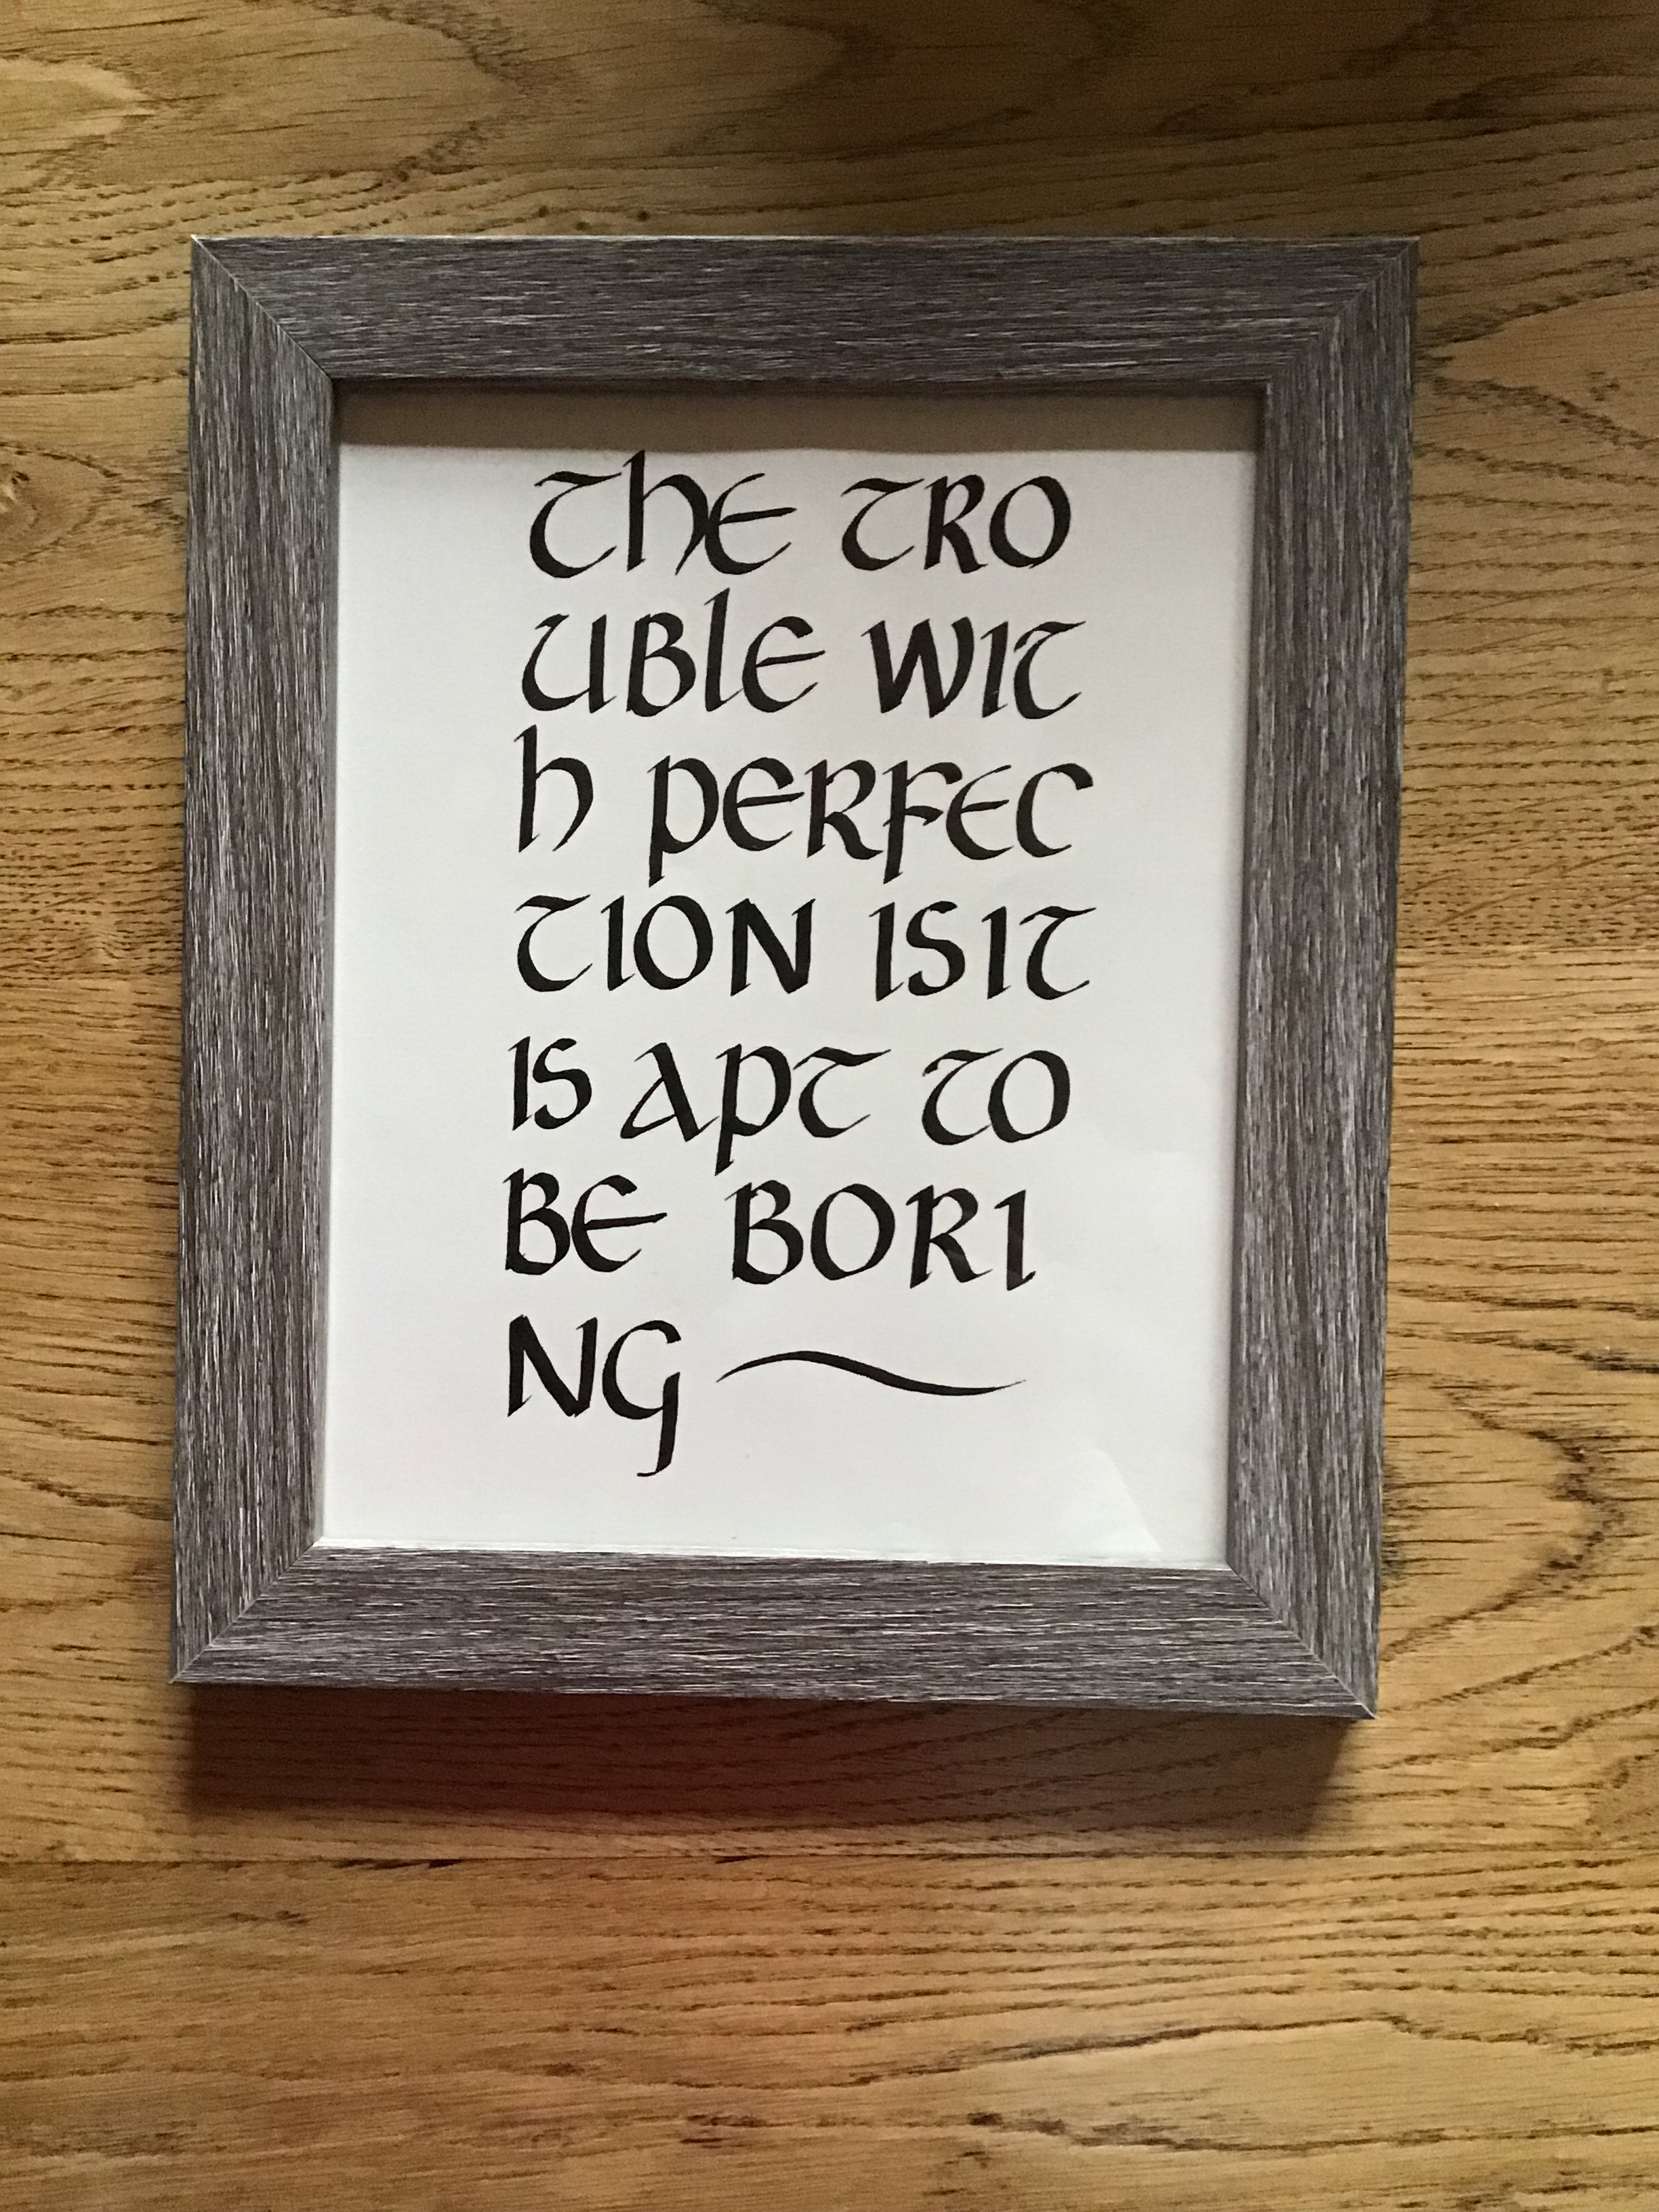 THE TRO
UBLE WIT
H PERFEC
TION IS IT
IS APT TO
BE BORI
NG ~